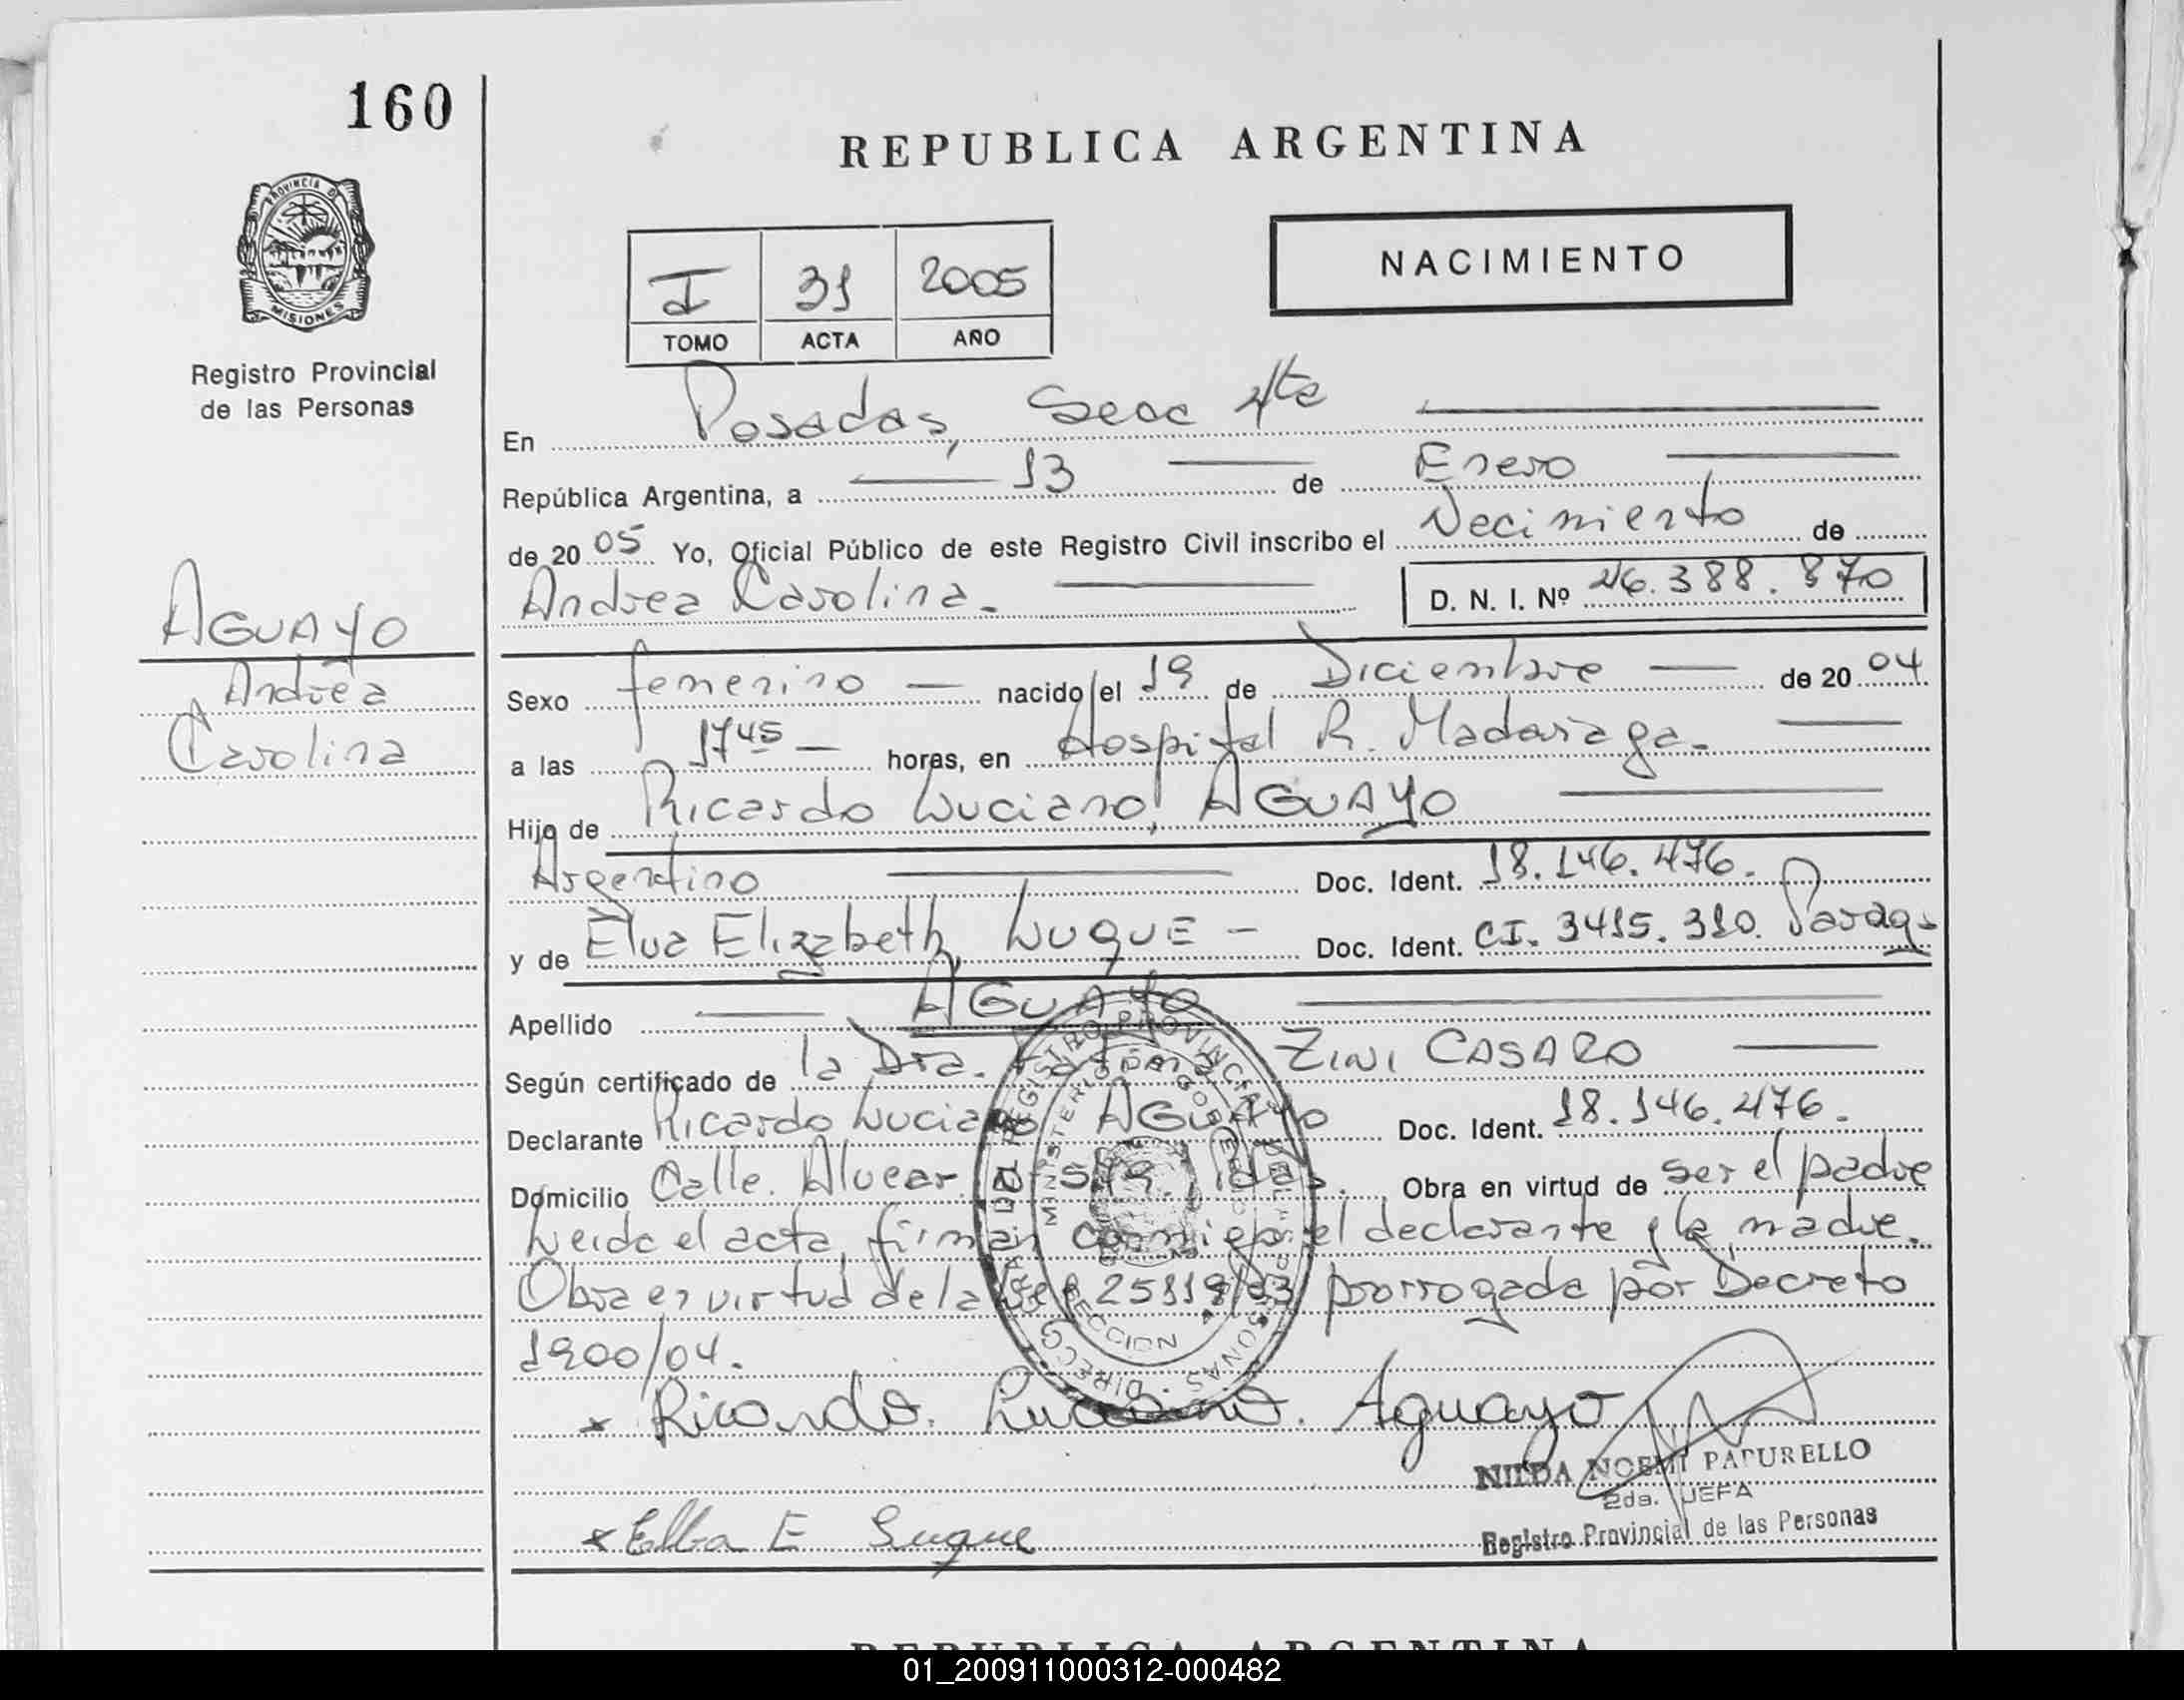 160
REPUBLICA ARGENTINA
PROVINCIA D
MISIONES
Registro Provincial
de las Personas
I 31 2005
TOMO ACTA AÑO
NACIMIENTO
En Posadas, Secc 4ta
República Argentina, a 13 de Enero
de 2005 Yo, Oficial Público de este Registro Civil inscribo el Nacimiento de
Andrea Carolina. D. N. I. Nº 46.388.870
AGUAYO
Andrea
Carolina
Sexo femenino nacido el 19 de Diciembre de 2004
a las 1745 horas, en Hospital R. Madariaga.
Hijo de Ricardo Luciano, AGUAYO
Argentino Doc. Ident. 18.146.476.
y de Elva Elizabeth, LUQUE - Doc. Ident. CI. 3415.310. Parag.
Apellido AGUAYO
Según certificado de la Dra. ZINI CASARO
Declarante Ricardo Luciano AGUAYO Doc. Ident. 18.146.476.
Domicilio Calle. Alvear Pdas. Obra en virtud de ser el padre
Leida el acta, firman conmigo el declarante y la madre.
Obra en virtud de la Ley 25819/03 prorrogada por Decreto
1900/04.
x Ricardo. Luciano. Aguayo
NILDA NOEMI PATURELLO
2da. JEFA
Registro Provincial de las Personas
x Elba E Luque
REPUBLICA ARGENTINA
01_200911000312-000482